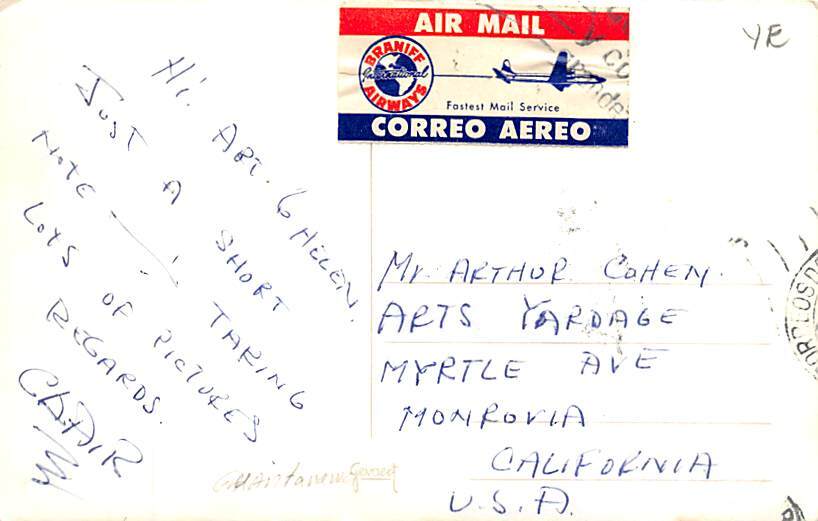 AIR MAIL
BRANIFF
International
AIRWAYS
Fastest Mail Service
CORREO AEREO
YE
Hi ART. & HELEN.
JUST A SHORT
NOTE — TAKING
LOTS OF PICTURES
REGARDS.
Mr. ARTHUR COHEN.
ARTS YARDAGE
MYRTLE AVE
MONROVIA
CALIFORNIA
U.S.A.